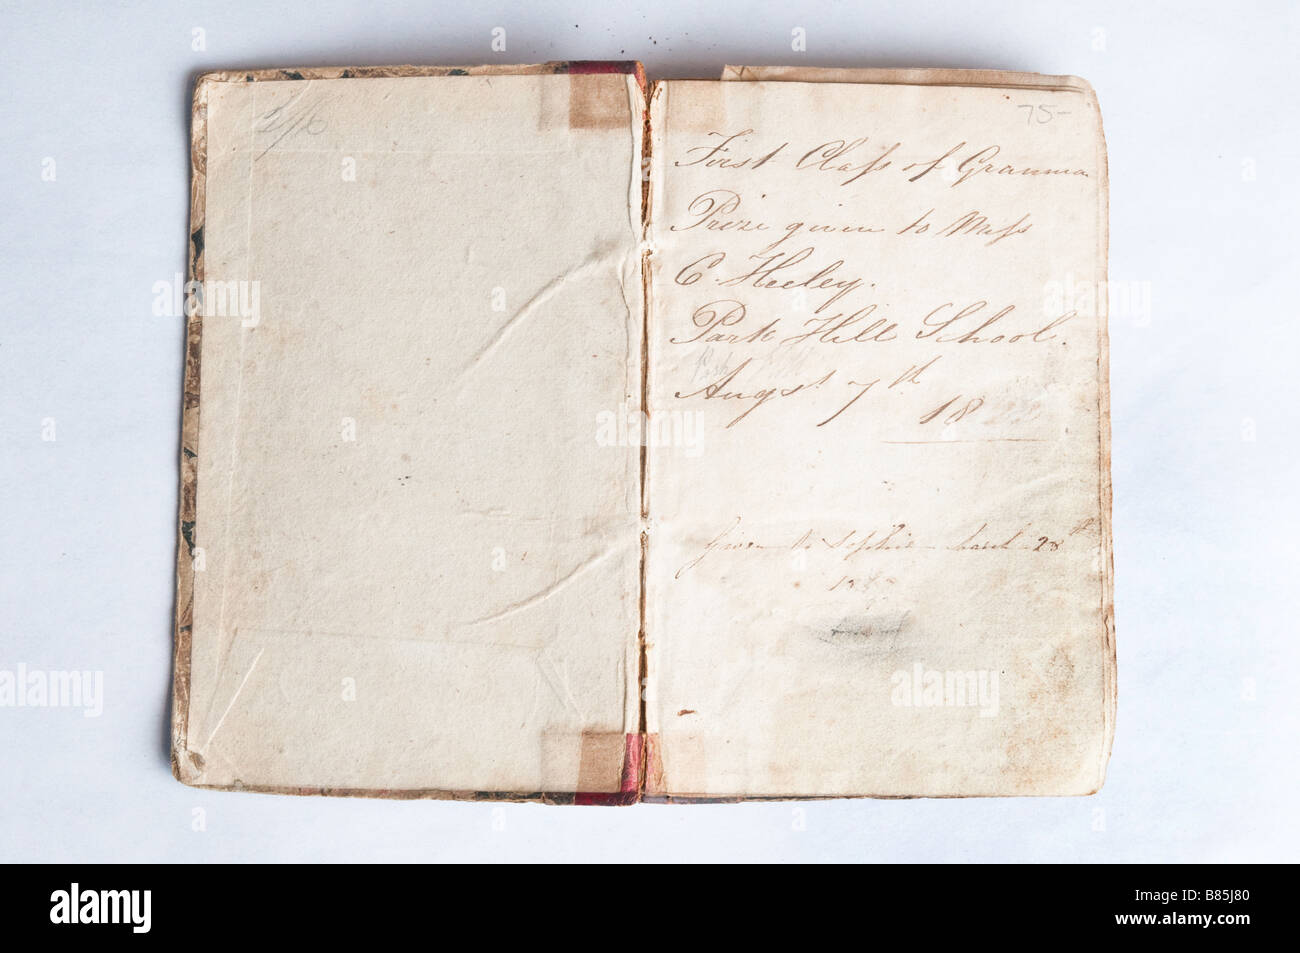 2/6
75-
First Claſs of Gramma
Prize given to Miſs
C. Heeley.
Park Hill School.
Augst 7th
18
Given to Sophie March 28th
alamy
Image ID: B85J80
www.alamy.com